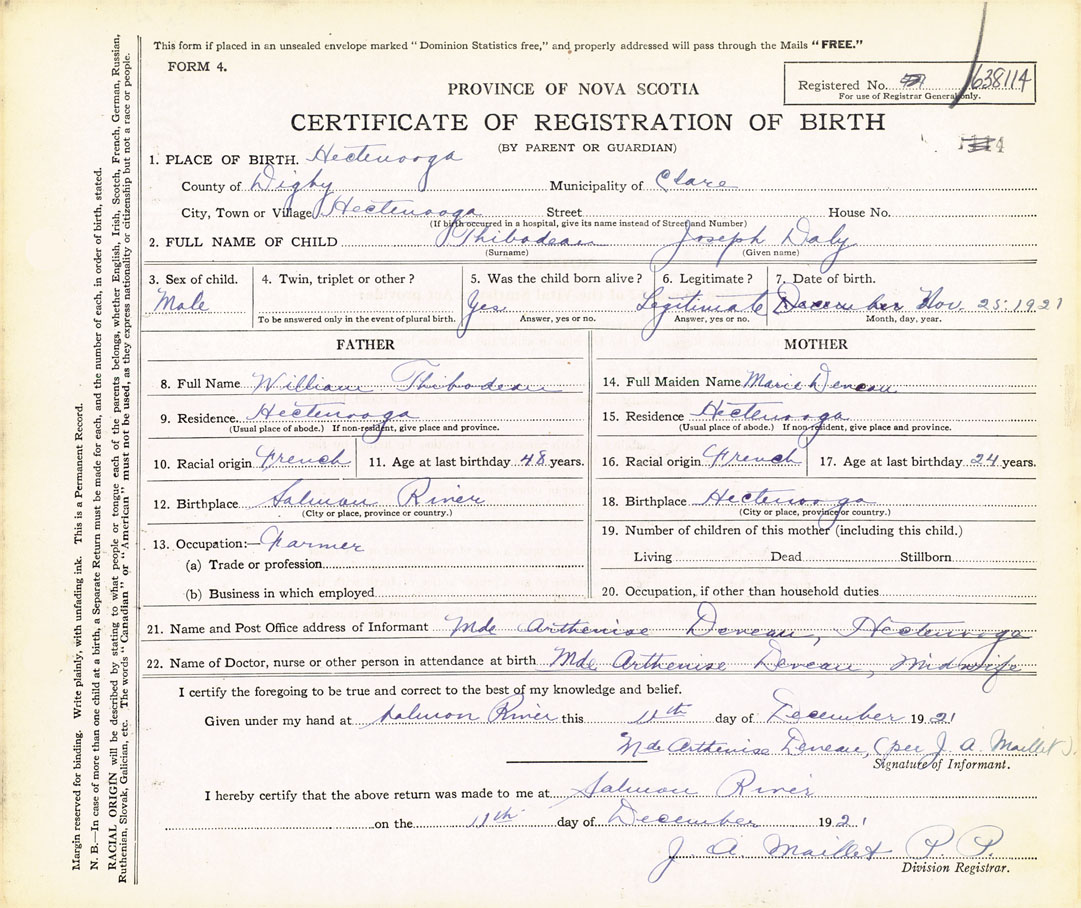 This form if placed in an unsealed envelope marked "Dominion Statistics free," and properly addressed will pass through the Mails "FREE."
FORM 4.
Registered No. 638114
For use of Registrar General only.
PROVINCE OF NOVA SCOTIA
CERTIFICATE OF REGISTRATION OF BIRTH
(BY PARENT OR GUARDIAN)
1. PLACE OF BIRTH. Hectenooga
County of Digby Municipality of Clare
City, Town or Village Hectenooga Street House No.
(If birth occurred in a hospital, give its name instead of Street and Number)
2. FULL NAME OF CHILD Thibodeau Joseph Daly
(Surname) (Given name)
3. Sex of child. 4. Twin, triplet or other? 5. Was the child born alive? 6. Legitimate? 7. Date of birth.
Male Yes Legitimate December Nov. 25. 1921
To be answered only in the event of plural birth. Answer, yes or no. Answer, yes or no. Month, day, year.
FATHER MOTHER
8. Full Name William Thibodeau 14. Full Maiden Name Marie Deneau
9. Residence. Hectenooga 15. Residence Hectenooga
(Usual place of abode.) If non-resident, give place and province. (Usual place of abode.) If non-resident, give place and province.
10. Racial origin French 11. Age at last birthday 48 years. 16. Racial origin French 17. Age at last birthday 24 years.
12. Birthplace Salmon River 18. Birthplace Hectenooga
(City or place, province or country.) (City or place, province or country.)
13. Occupation:— Farmer 19. Number of children of this mother (including this child.)
(a) Trade or profession Living Dead Stillborn
(b) Business in which employed 20. Occupation, if other than household duties
21. Name and Post Office address of Informant Mde Arthenise Deveau, Hectenooga
22. Name of Doctor, nurse or other person in attendance at birth Mde Arthenise Deveau, Midwife
I certify the foregoing to be true and correct to the best of my knowledge and belief.
Given under my hand at Salmon River this 11th day of December 1921
Mde Arthenise Deveau, (per J. A. Maillet).
Signature of Informant.
I hereby certify that the above return was made to me at Salmon River
on the 11th day of December 1921
J. A. Maillet P. P.
Division Registrar.
Margin reserved for binding. Write plainly, with unfading ink. This is a Permanent Record.
N. B.—In case of more than one child at a birth, a Separate Return must be made for each, and the number of each, in order of birth, stated.
RACIAL ORIGIN will be described by stating to what people or tongue each of the parents belongs, whether English, Irish, Scotch, French, German, Russian,
Ruthenian, Slovak, Galician, etc. The words "Canadian" or "American" must not be used, as they express nationality or citizenship but not a race or people.